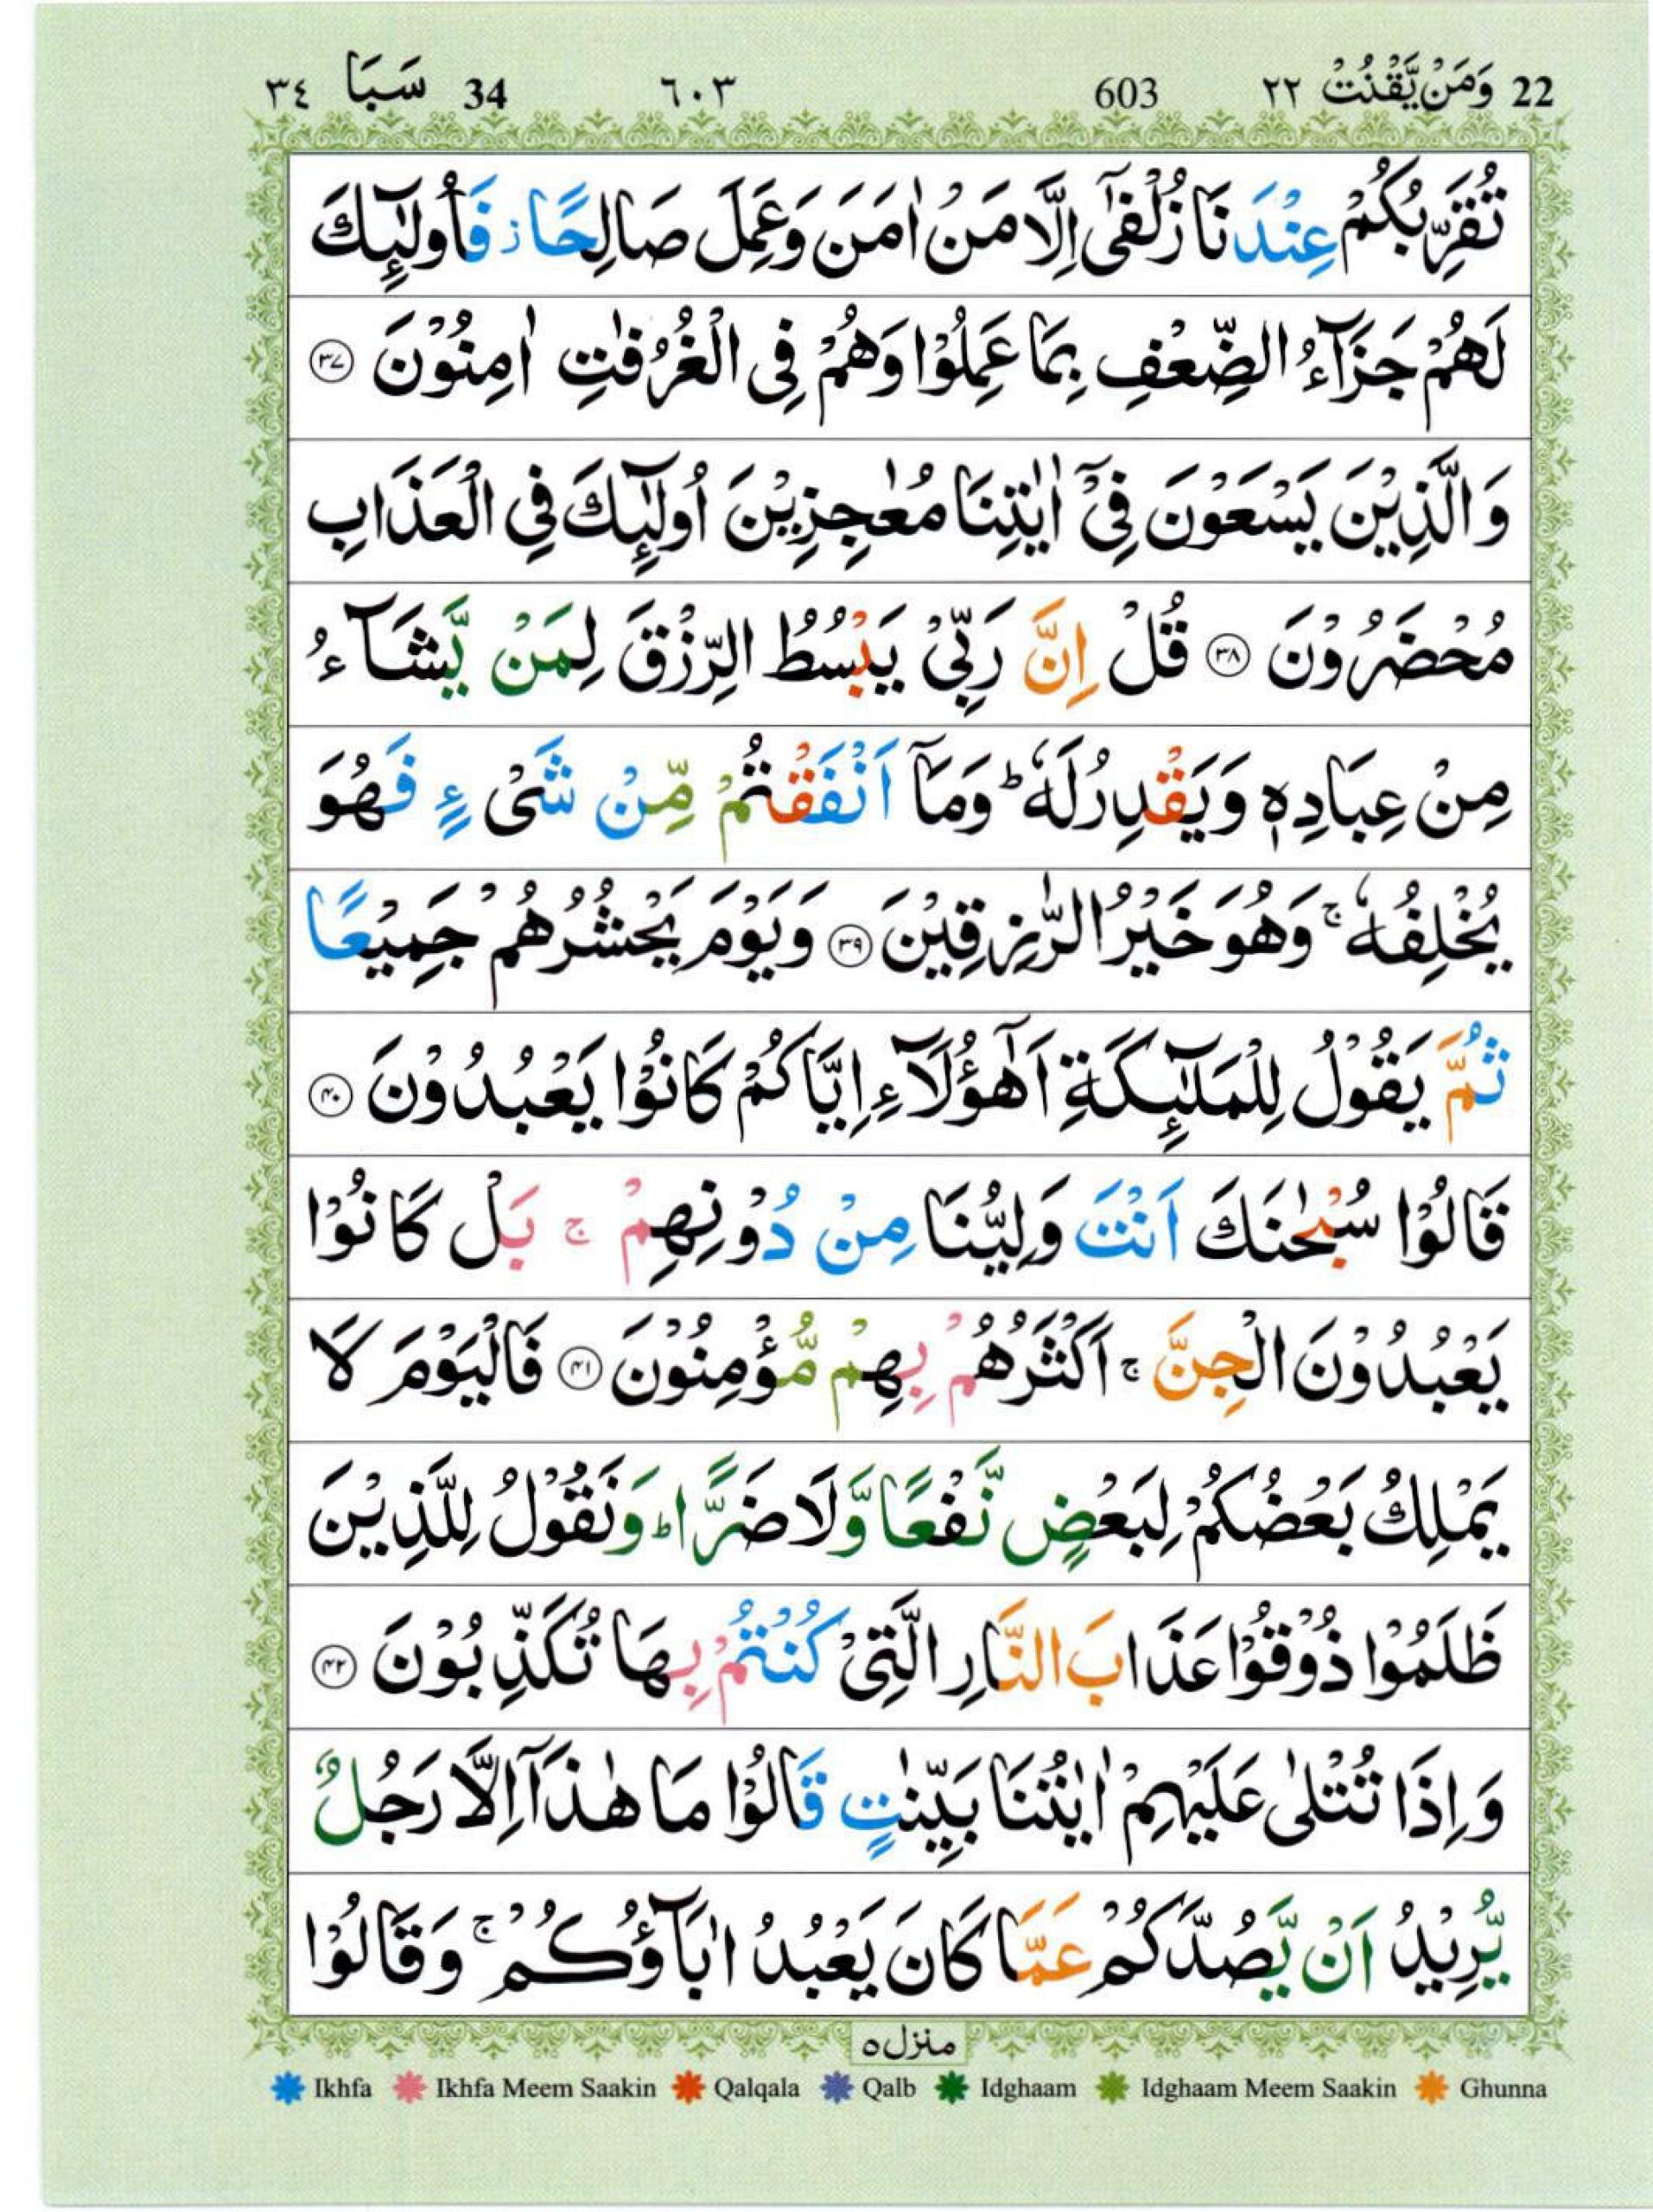 22 وَمَنْ يَّقْنُتْ ٢٢ 603 ٦٠٣ 34 سَبَا ٣٤
تُقَرِّبُكُمْ عِنْدَنَا زُلْفٰٓى اِلَّا مَنْ اٰمَنَ وَعَمِلَ صَالِحًا ز فَاُولٰٓئِكَ
لَهُمْ جَزَآءُ الضِّعْفِ بِمَا عَمِلُوْا وَهُمْ فِى الْغُرُفٰتِ اٰمِنُوْنَ ۝۳۷
وَالَّذِيْنَ يَسْعَوْنَ فِىْٓ اٰيٰتِنَا مُعٰجِزِيْنَ اُولٰٓئِكَ فِى الْعَذَابِ
مُحْضَرُوْنَ ۝۳۸ قُلْ اِنَّ رَبِّىْ يَبْسُطُ الرِّزْقَ لِمَنْ يَّشَآءُ
مِنْ عِبَادِهٖ وَيَقْدِرُ لَهٗ ؕ وَمَآ اَنْفَقْتُمْ مِّنْ شَىْءٍ فَهُوَ
يُخْلِفُهٗ ۚ وَهُوَ خَيْرُ الرّٰزِقِيْنَ ۝۳۹ وَيَوْمَ يَحْشُرُهُمْ جَمِيْعًا
ثُمَّ يَقُوْلُ لِلْمَلٰٓئِكَةِ اَهٰٓؤُلَآءِ اِيَّاكُمْ كَانُوْا يَعْبُدُوْنَ ۝۴۰
قَالُوْا سُبْحٰنَكَ اَنْتَ وَلِيُّنَا مِنْ دُوْنِهِمْ ۚ بَلْ كَانُوْا
يَعْبُدُوْنَ الْجِنَّ ۚ اَكْثَرُهُمْ بِهِمْ مُّؤْمِنُوْنَ ۝۴۱ فَالْيَوْمَ لَا
يَمْلِكُ بَعْضُكُمْ لِبَعْضٍ نَّفْعًا وَّلَا ضَرًّا ؕ وَنَقُوْلُ لِلَّذِيْنَ
ظَلَمُوْا ذُوْقُوْا عَذَابَ النَّارِ الَّتِىْ كُنْتُمْ بِهَا تُكَذِّبُوْنَ ۝۴۲
وَاِذَا تُتْلٰى عَلَيْهِمْ اٰيٰتُنَا بَيِّنٰتٍ قَالُوْا مَا هٰذَآ اِلَّا رَجُلٌ
يُّرِيْدُ اَنْ يَّصُدَّكُمْ عَمَّا كَانَ يَعْبُدُ اٰبَآؤُكُمْ ۚ وَقَالُوْا
منزل ٥
Ikhfa Ikhfa Meem Saakin Qalqala Qalb Idghaam Idghaam Meem Saakin Ghunna